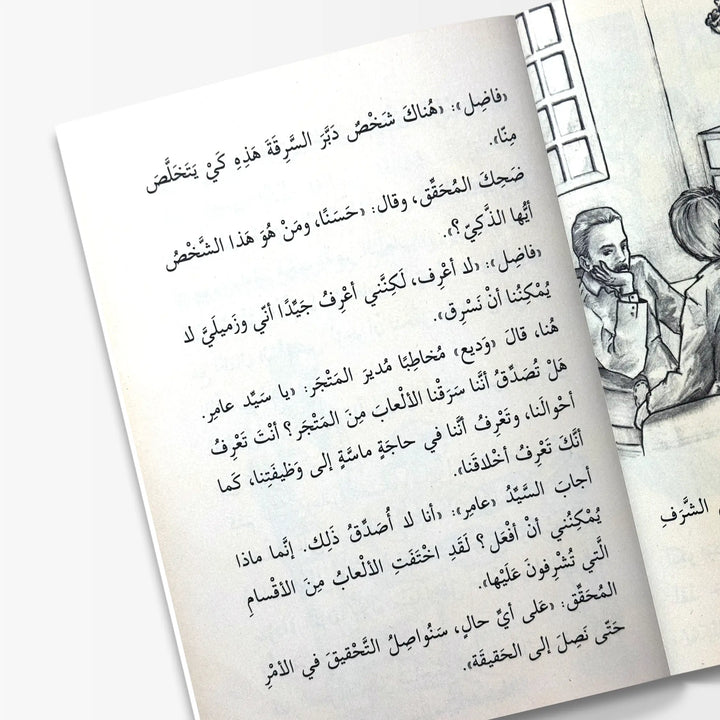 «فاضِل»: «هُناكَ شَخْصٌ دَبَّرَ السَّرِقَةَ هَذِهِ كَيْ يَتَخَلَّصَ
مِنّا».
ضَحِكَ المُحَقِّق، وقال: «حَسَنًا، ومَنْ هُوَ هَذا الشَّخْصُ
أيُّها الذَّكِيّ؟».
«فاضِل»: «لا أعْرِف، لَكِنَّني أعْرِفُ جَيِّدًا أنّي وزَميلَيَّ لا
يُمْكِنُنا أنْ نَسْرِق».
هُنا، قالَ «وَديع» مُخاطِبًا مُديرَ المَتْجَر: «يا سَيِّد عامِر.
هَلْ تُصَدِّقُ أنَّنا سَرَقْنا الألْعابَ مِنَ المَتْجَر؟ أنْتَ تَعْرِفُ
أحْوالَنا، وتَعْرِفُ أنَّنا في حاجَةٍ ماسَّةٍ إلى وَظيفَتِنا، كَما
أنَّكَ تَعْرِفُ أخْلاقَنا».
أجابَ السَّيِّدُ «عامِر»: «أنا لا أُصَدِّقُ ذَلِك. إنَّما ماذا
يُمْكِنُني أنْ أفْعَل؟ لَقَدِ اخْتَفَتِ الألْعابُ مِنَ الأقْسامِ
الَّتي تُشْرِفونَ عَلَيْها».
المُحَقِّق: «عَلى أيِّ حالٍ، سَنُواصِلُ التَّحْقيقَ في الأمْرِ
حَتّى نَصِلَ إلى الحَقيقَة».
الشَّرَفِ